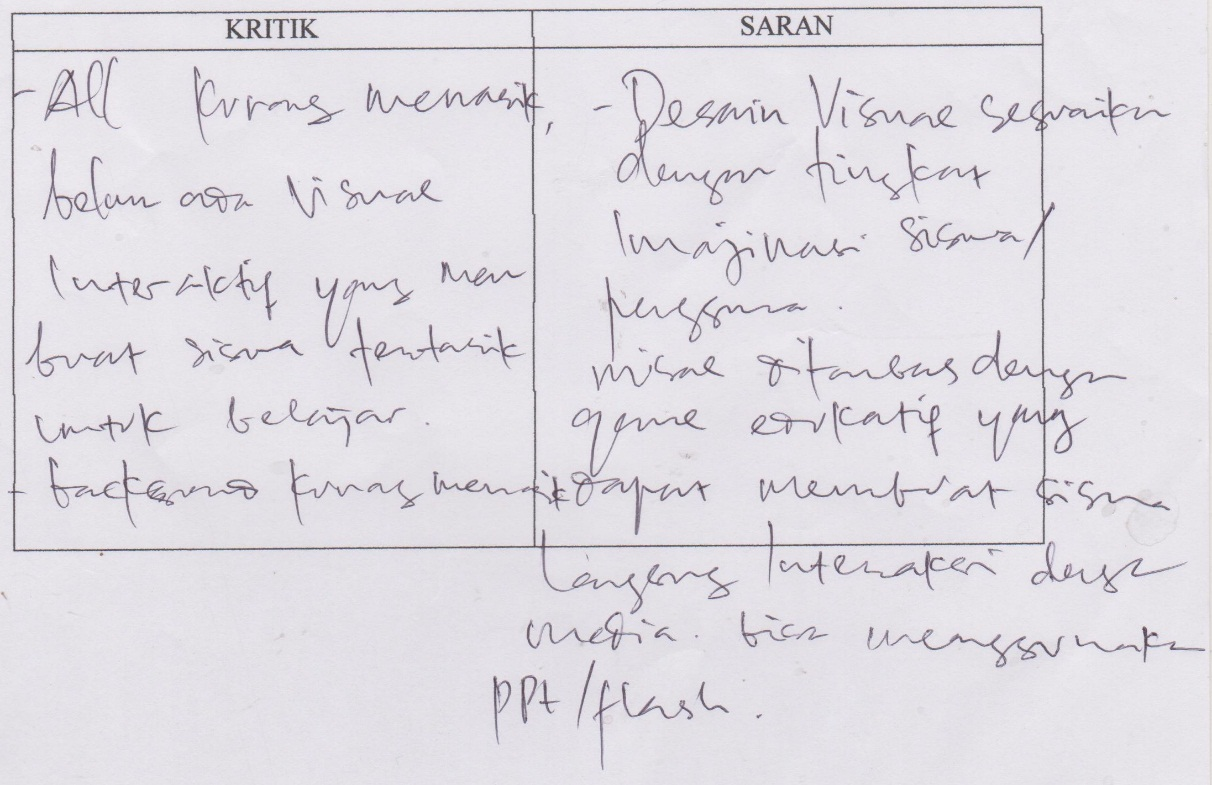 KRITIK
- All kurang menarik,
belum ada visual
interaktif yang mem
buat siswa tertarik
untuk belajar.
- background kurang menarik
SARAN
- Desain Visual sesuaikan
dengan tingkat
Imajinasi siswa/
pengguna.
misal ditambas dengan
game edukatif yang
dapat membuat siswa
langsung Interaksi dengan
media. bisa menggunakan
PPt/flash.